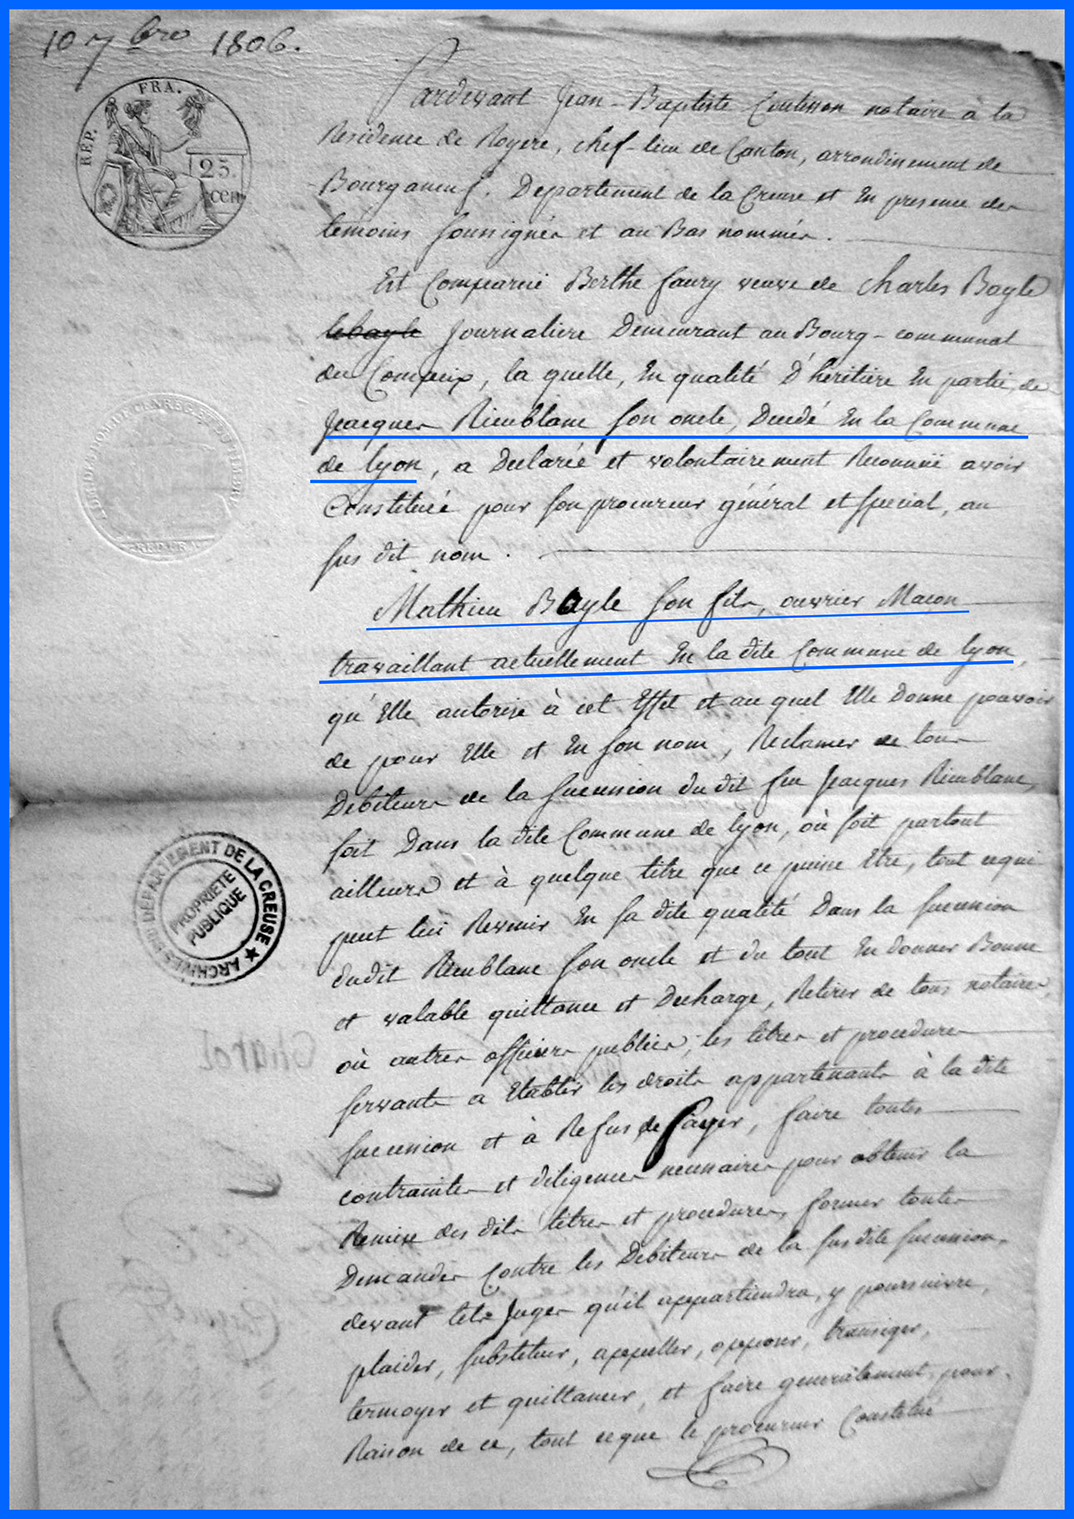 10 7bre 1806.
REP. FRA.
25.
cen
Pardevant Jean-Baptiste Coutisson notaire à la
Residence de Royere, chef-lieu de Canton, arrondissement de
Bourganeuf. Departement de la Creuse et En presence des
temoins soussignés et au Bas nommés.
Est Comparuë Berthe faury veuve de Charles Bayle
lebayle Journaliere Demeurant au Bourg-communal
du Compeix, la quelle, En qualité D'heritiere En partie, de
Jacques Rimblanc son oncle, Decedé En la Commune
de lyon, a Declarée et volontairement Reconnuë avoir
Constituée pour son procureur général et special, au
sus dit nom.
Mathieu Bayle son fils, ouvrier Maçon
travaillant actuellement En la dite Commune de lyon,
qu'Elle autorise à cet Effet et au quel Elle Donne pouvoir
de pour Elle et En son nom, Reclamer de tous
Debiteurs de la succession du dit feu Jacques Rimblanc,
soit Dans la dite Commune de lyon, où soit partout
ailleurs et à quelque titre que ce puisse Etre, tout cequi
peut lui Revenir En sa dite qualité Dans la succession
dudit Rimblanc son oncle et du tout En donner Bonne
et valable quittance et Decharge, Retirer de tous notaires
où autres officiers publics, les titres et procedures
servants a Etablir les droits appartenants à la dite
succession et à Refus de Payer, faire toutes
contraintes et diligences necessaires pour obtenir la
Remise des dits titres et procedures, former toutes
Demandes Contre les Debiteurs de la sus dite succession,
devant tels Juges qu'il appartiendra, y poursuivre,
plaider, substituer, appeller, opposer, transiger,
termoyer et quittancer, et faire generalement, pour
Raison de ce, tout ceque le procureur Constitué
ARCHIVES DU DEPARTEMENT DE LA CREUSE ★
PROPRIETE
PUBLIQUE